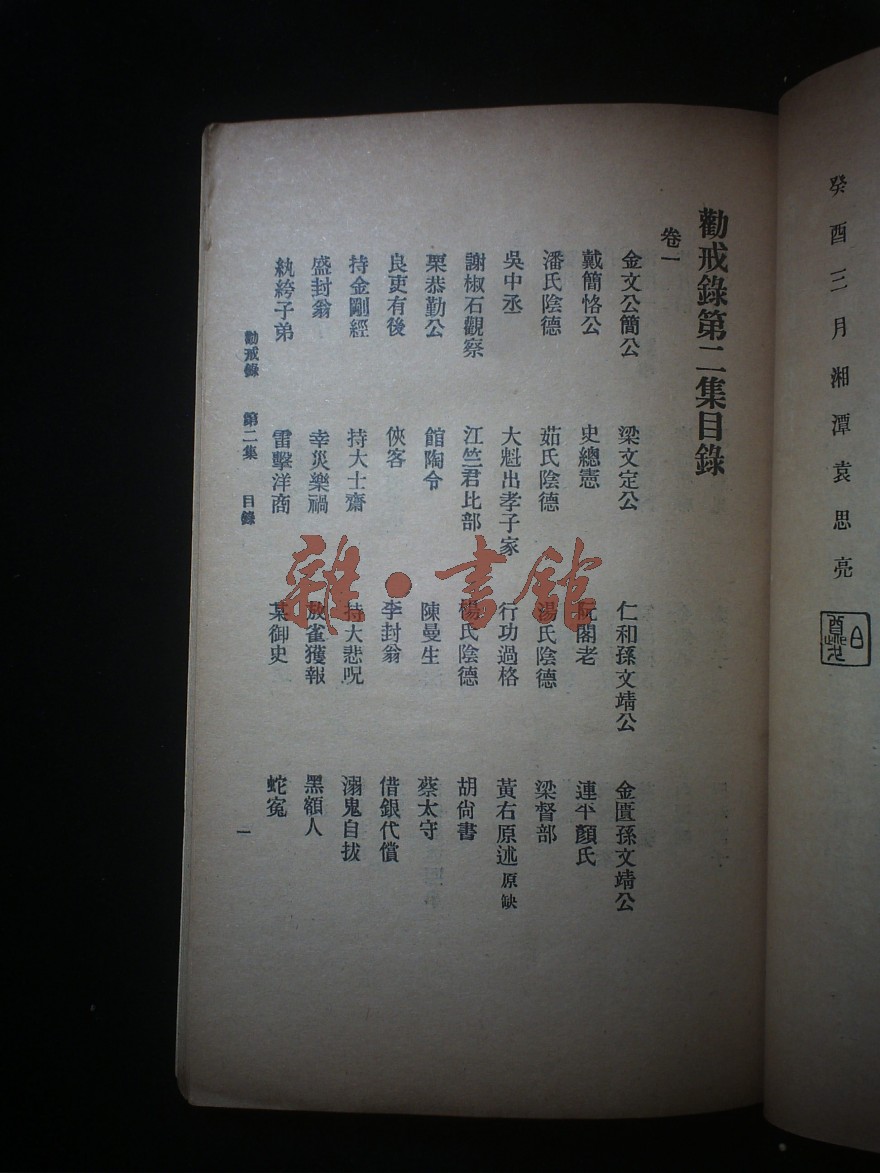 癸酉三月湘潭袁思亮
勸戒錄第二集目錄
卷一
金文公簡公 梁文定公 仁和孫文靖公 金匱孫文靖公
戴簡恪公 史總憲 阮閣老 連平顏氏
潘氏陰德 茹氏陰德 湯氏陰德 梁督部
吳中丞 大魁出孝子家 行功過格 黃右原述 原缺
謝椒石觀察 江竺君比部 楊氏陰德 胡尙書
栗恭勤公 館陶令 陳曼生 蔡太守
良吏有後 俠客 李封翁 借銀代償
持金剛經 持大士齋 持大悲呪 溺鬼自拔
盛封翁 幸災樂禍 放雀獲報 黑額人
紈絝子弟 雷擊洋商 某御史 蛇冤
勸戒錄 第二集 目錄 一
雜·書館